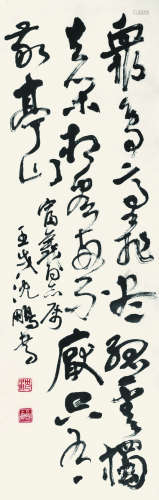 众鸟高飞尽孤云独
去闲相看两不厌只有
敬亭山
富义同志属
壬戌沈鹏书